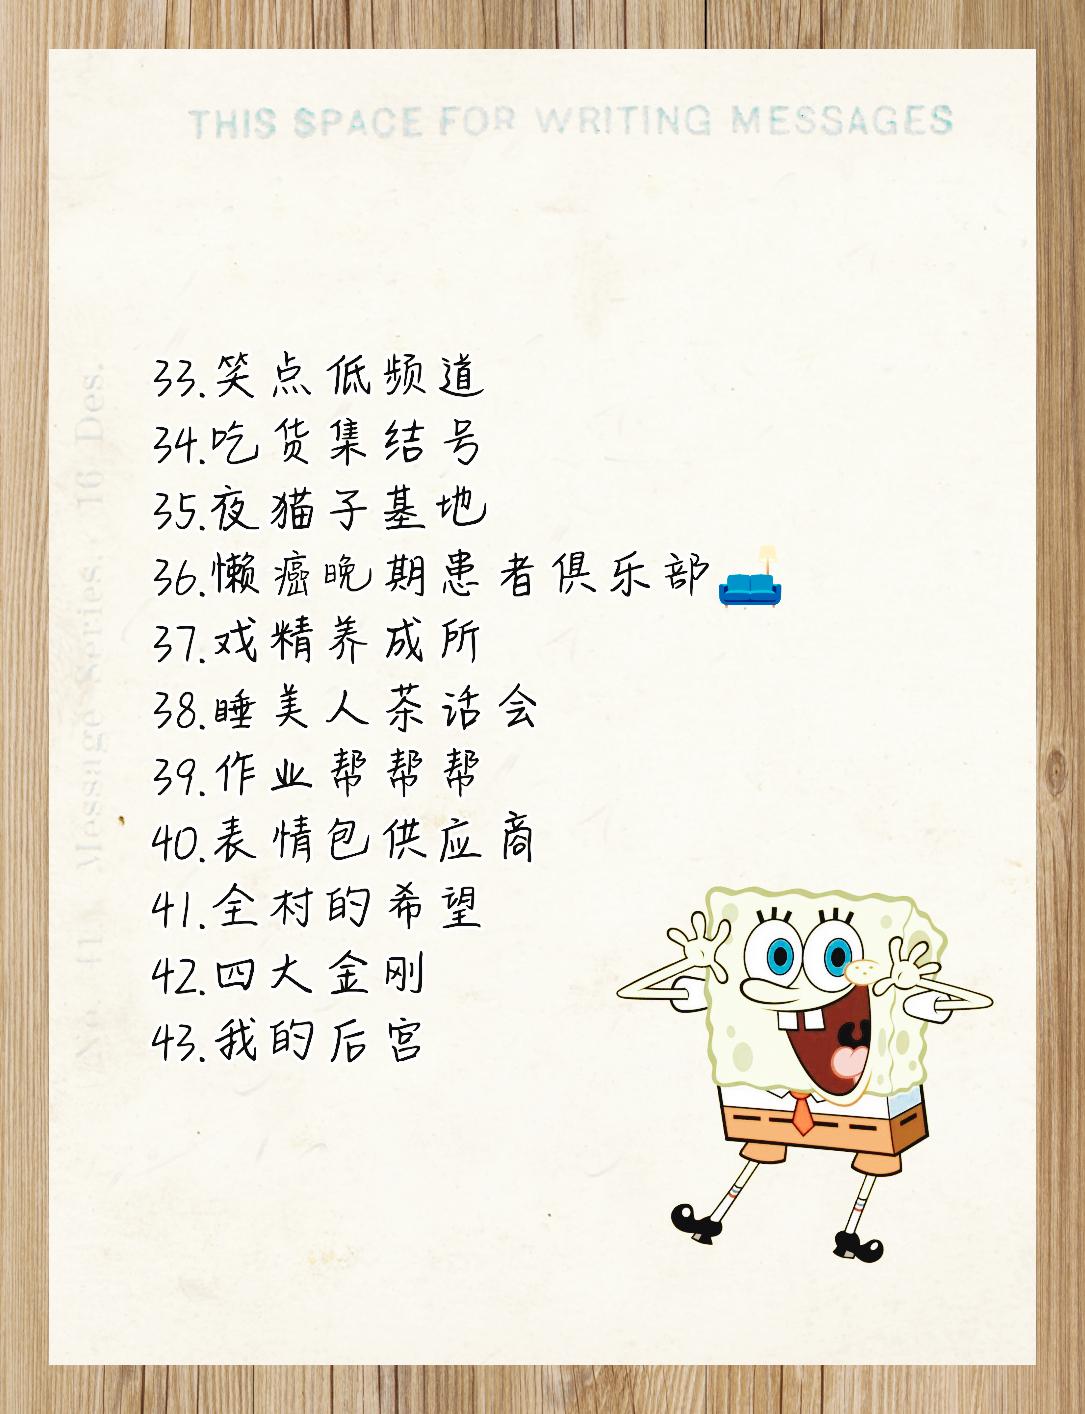 THIS SPACE FOR WRITING MESSAGES
33.笑点低频道
34.吃货集结号
35.夜猫子基地
36.懒癌晚期患者俱乐部
37.戏精养成所
38.睡美人茶话会
39.作业帮帮帮
40.表情包供应商
41.全村的希望
42.四大金刚
43.我的后宫
Message Series. 16 Des.